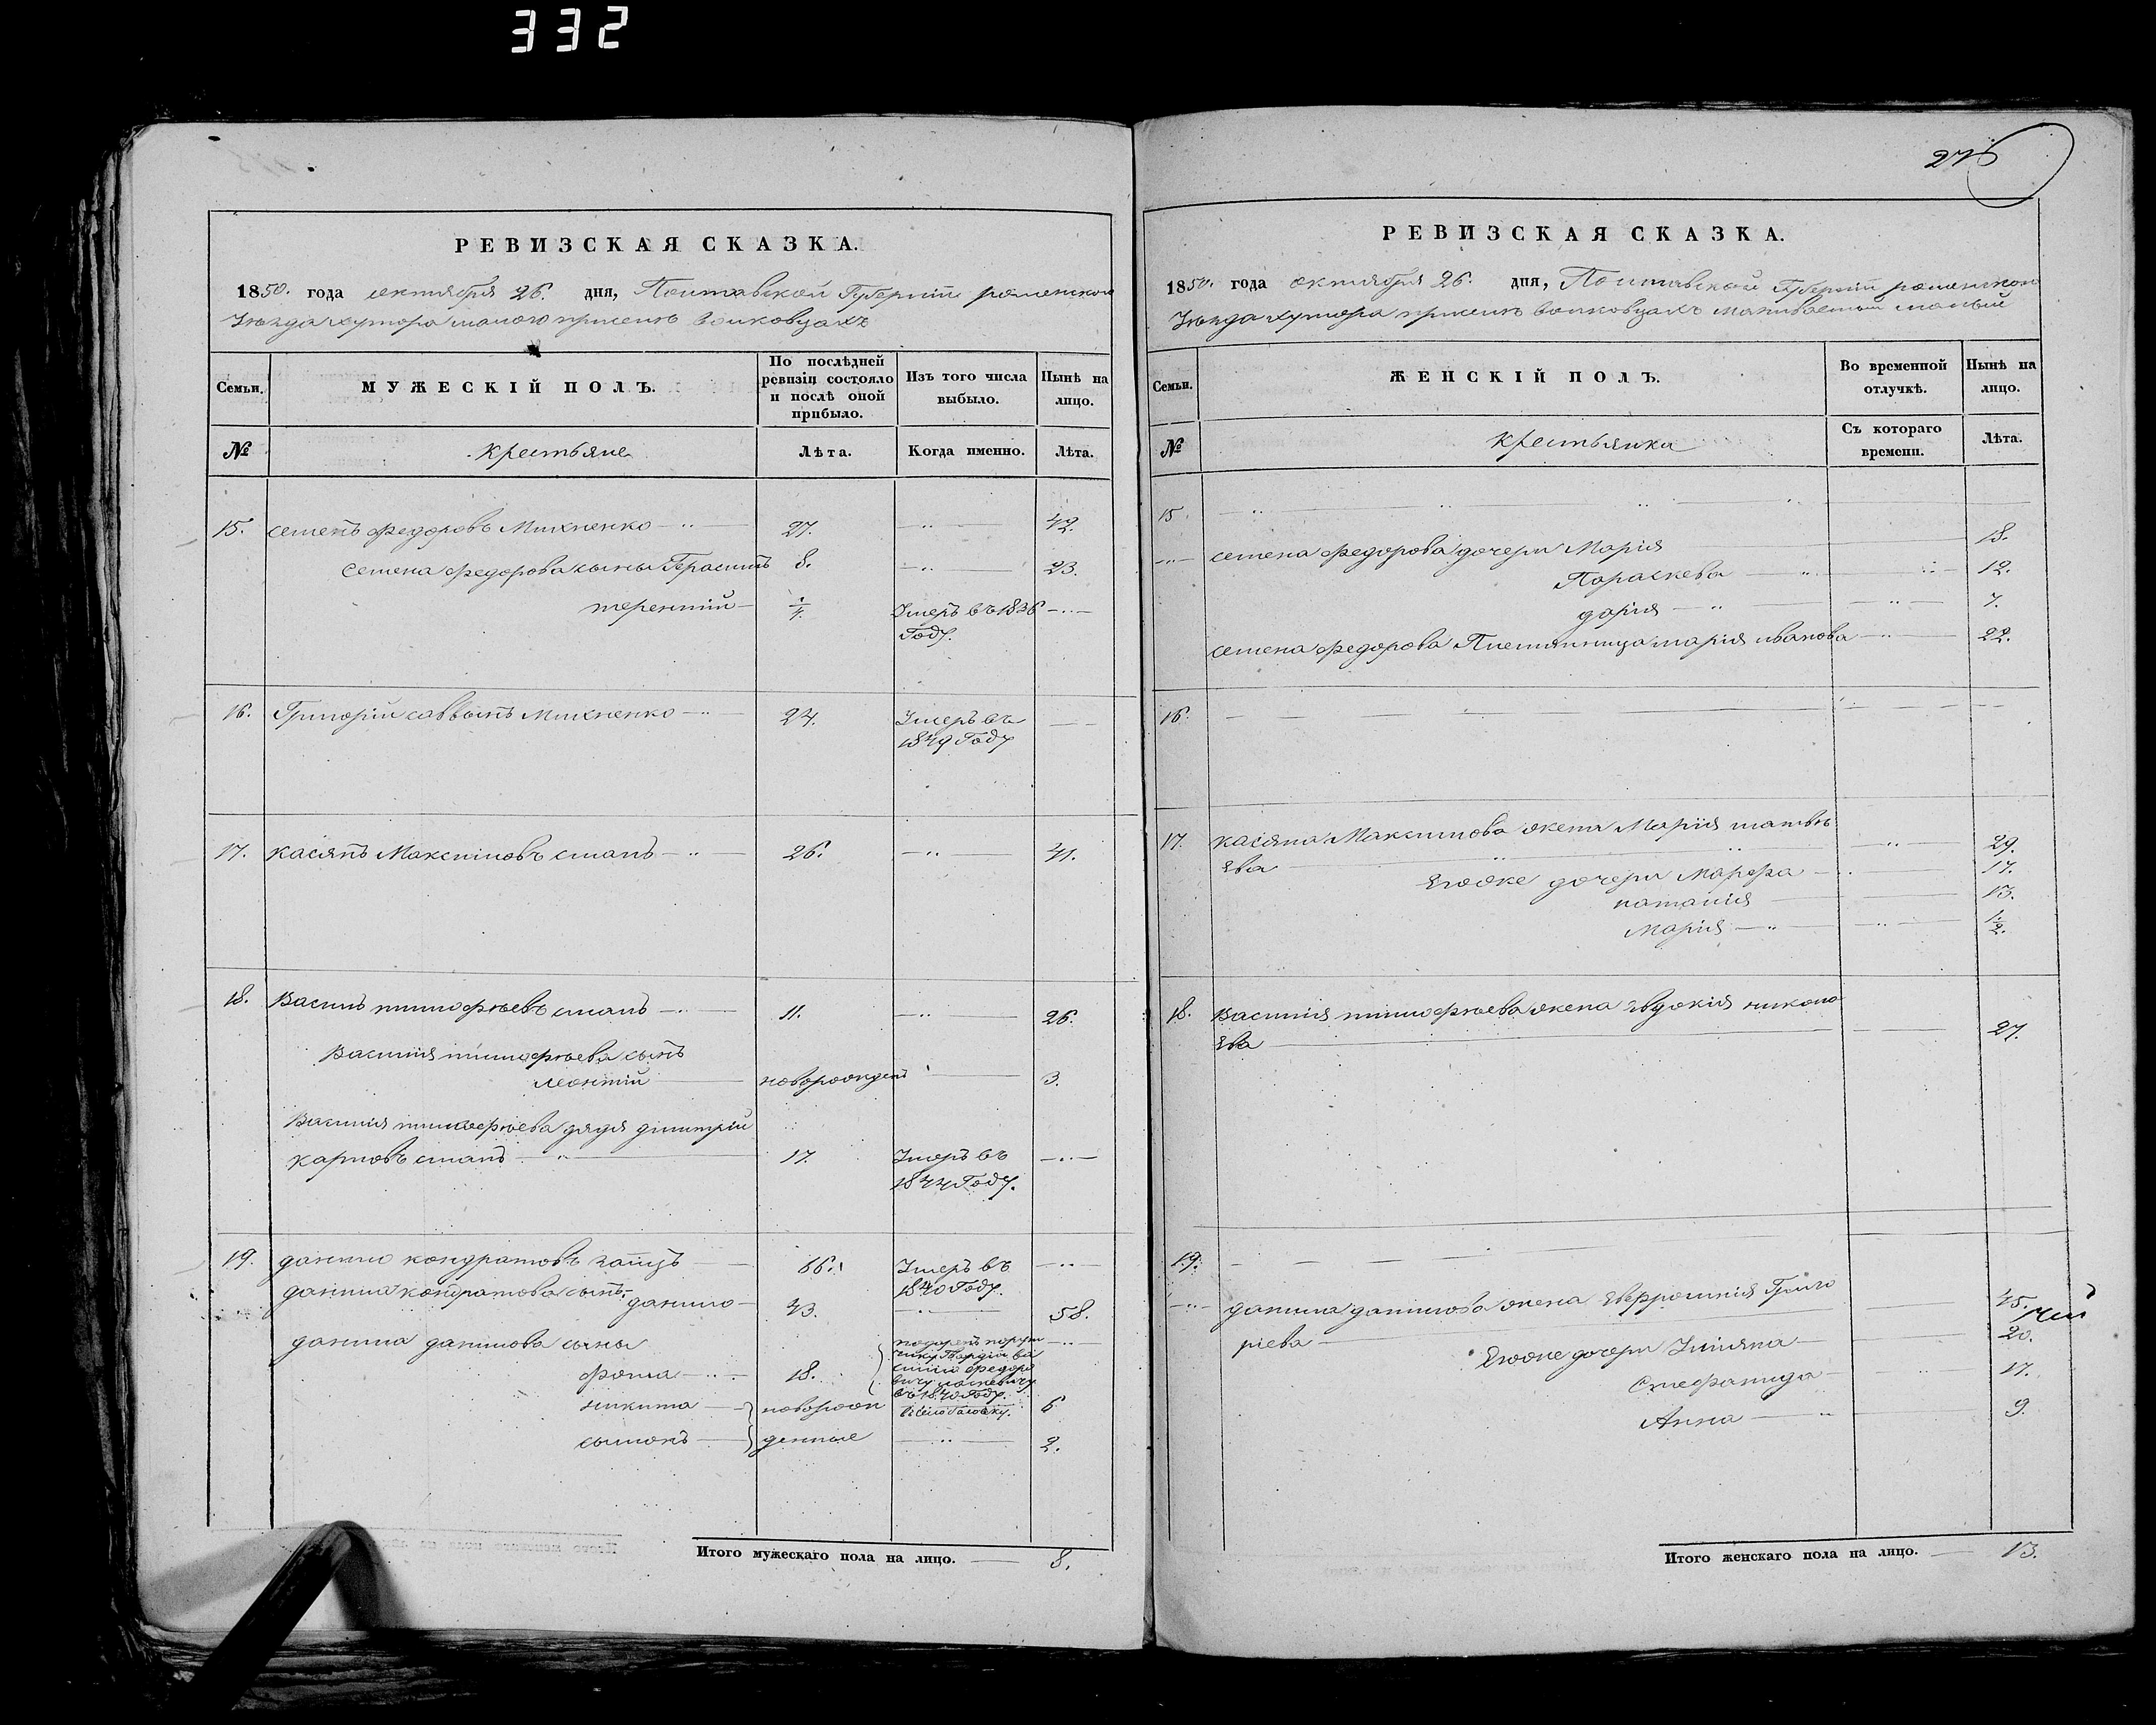 332
РЕВИЗСКАЯ СКАЗКА.
1850. года октября 26. дня, Полтавской Губерніи роменского
Уѣзда хутора малого присемѣ волковцахъ
Семьи. МУЖЕСКІЙ ПОЛЪ. По послѣдней ревизіи состояло и послѣ оной прибыло. Изъ того числа выбыло. Нынѣ на лицо.
№ Крестьяне Лѣта. Когда именно. Лѣта.
15. Семенъ федоровъ Михненко 27. 42.
Семена федорова сыны Герасимъ 8. 23.
терентій 1/4. Умеръ въ 1836
Году.
16. Григорій саввинъ Михненко 24. Умеръ въ
1849 Году
17. Касянъ Максимовъ 26. 41.
18. Василь тимофѣевъ 11. 26.
Василія тимофѣева сынъ
леонтій новорожденъ 3.
Василія тимофѣева дядя димитрій
карповъ 17. Умеръ въ
1844 Году.
19. данило кондратовъ заицъ 66. Умеръ въ
1840 Году.
данила кондратова сынъ
данило 43. 58.
данила данилова сыны
фома 18. подаренъ поручику Гвардіи василію федоровичу
въ 1840 Году.
никита новорож 6
симонъ денные 2.
Итого мужескаго пола на лицо. 8.
276
РЕВИЗСКАЯ СКАЗКА.
1850. года октября 26. дня, Полтавской Губерніи роменского
Уѣзда хутора присемѣ волковцахъ називаемый малый
Семьи. ЖЕНСКІЙ ПОЛЪ. Во временной отлучкѣ. Нынѣ на лицо.
№ Крестьянка Съ котораго времени. Лѣта.
15.
семена федорова дочери Марія 18.
Параскева 12.
дарія 7.
семена федорова Племянница марія иванова 22.
16.
17. касіяна Максимова жена Марія матвѣ
ева 29.
Егоже дочери Марфа 17.
наталія 13.
Марія 1/2.
18. Василія тимофѣева жена Евдокія никола
Ева 27.
19.
данила данилова жена Евфросинія Григо
ріева 45.
Егоже дочери Уліяна 20.
Стефанида 17.
Анна 9.
Итого женскаго пола на лицо. 13.